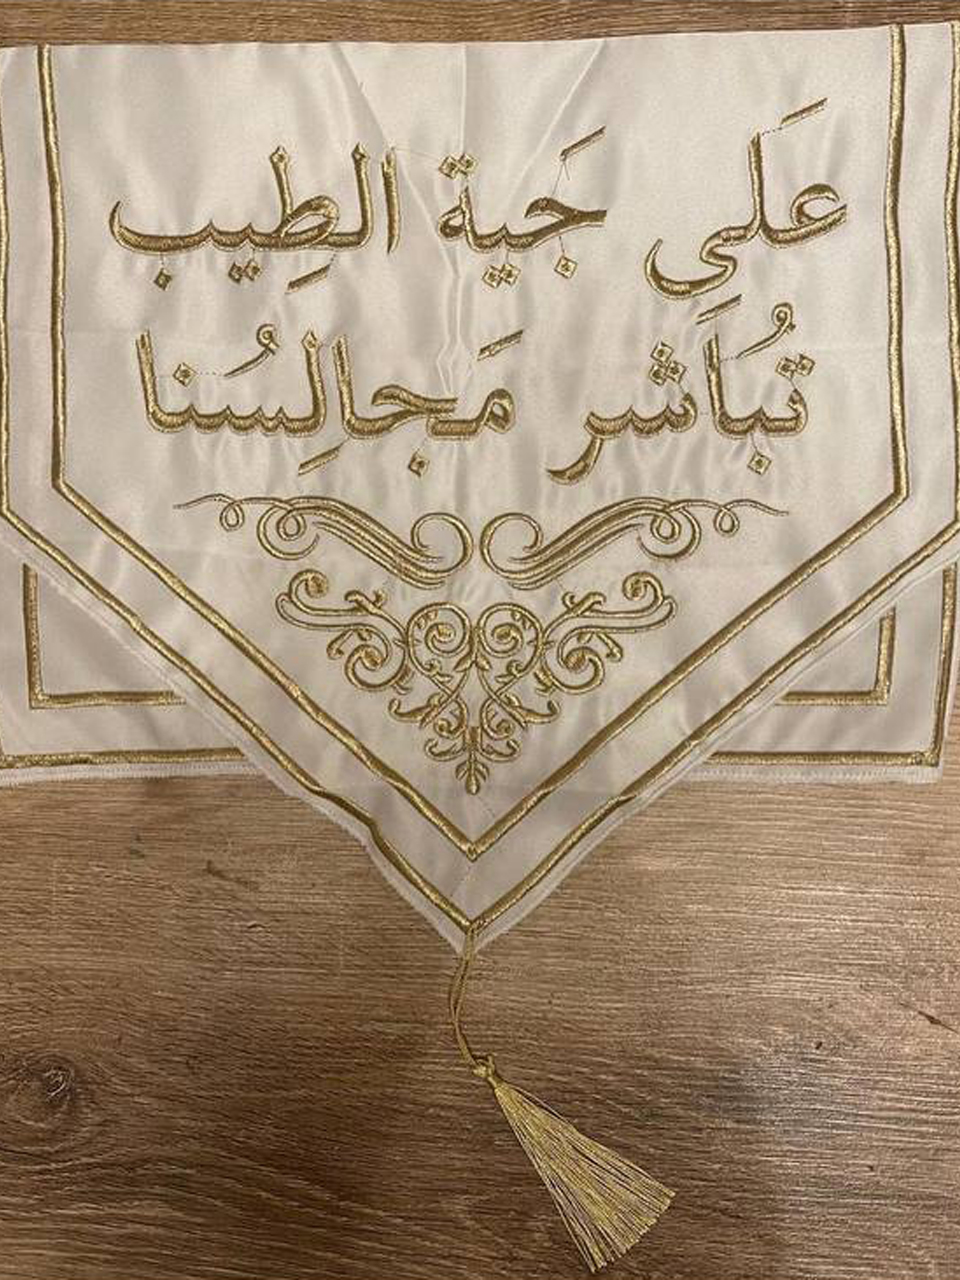 عَلَىِ جَية الطِيب
تُبَاشر مَجالِسُنا